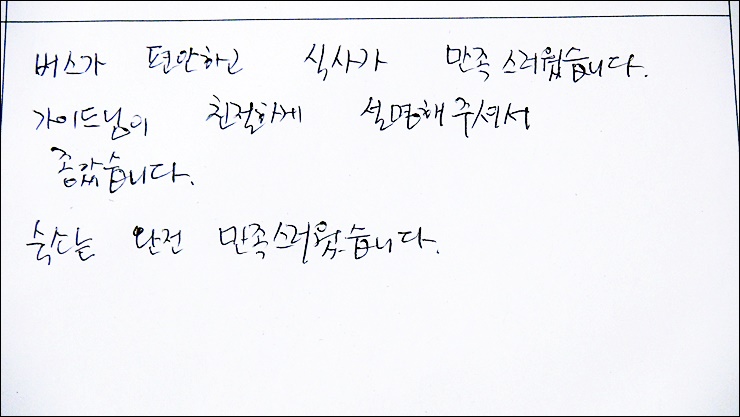 버스가 편안하고 식사가 만족스러웠습니다.
가이드님이 친절하게 설명해주셔서
좋았습니다.
숙소는 완전 만족스러웠습니다.